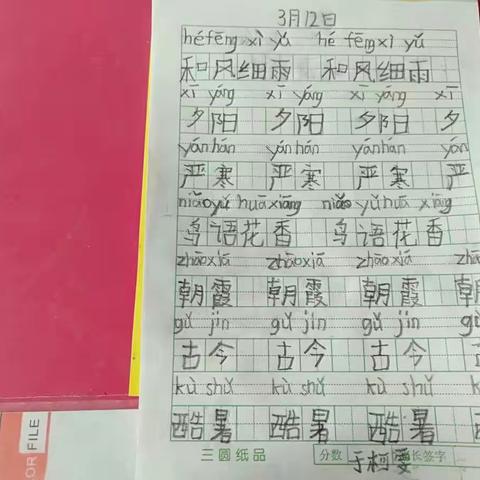 3月12日
héfēng xì yǔ hé fēng xì yǔ
和风细雨 和风细雨
xī yáng xī yáng xī yáng xī
夕阳 夕阳 夕阳 夕
yán hán yán hán yán hán yán
严寒 严寒 严寒 严
niǎo yǔ huā xiāng niǎo yǔ huā xiāng
鸟语花香 鸟语花香
zhāo xiá zhāo xiá zhāo xiá
朝霞 朝霞 朝霞 朝
gǔ jīn gǔ jīn gǔ jīn gǔ
古今 古今 古今
kù shǔ kù shǔ kù shǔ
酷暑 酷暑 酷暑
三圆纸品 分数 长签字
OR FILE